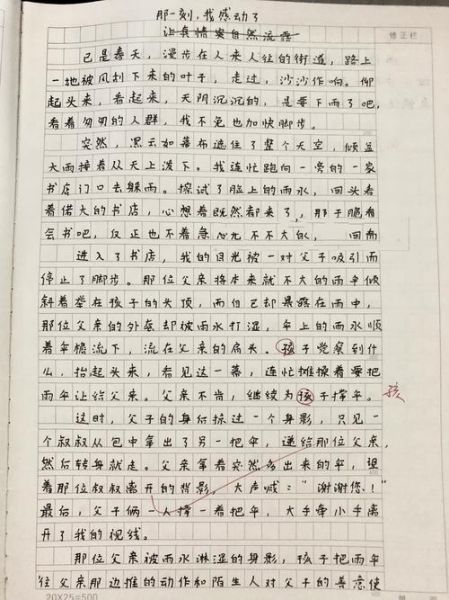 那一刻,我感动了
让真情实自然流露
修正栏
已是春天,漫步在人来人往的街道,路上
一地被风刮下来的叶子,走过,沙沙作响。仰
起头来,看起来,天阴沉沉的,是要下雨了吧,
看着匆匆的人群,我不免也加快脚步。
突然,黑云如幕布遮住了整个天空,倾盆
大雨接着从天上泼下。我连忙跑向一旁的一家
书店门口去躲雨。擦试了脸上的雨水,回头看
着偌大的书店,心想着既然都来了,那于脆看
会书吧,反正也不着急
进入了书店,我的目光被一对父子吸引而
停止了脚步。那位父亲将本来就不大的雨伞倾
斜着举在孩子的头顶,而自己却暴露在雨中,
那位父亲的外套却被雨水打湿,伞上的雨水顺
着伞檐流下,流在父亲的肩头。孩子觉察到什
么,抬起头来,看见这一幕,连忙推搡着要把
雨伞让给父亲。父亲不肯,继续为孩子撑伞。
孩
这时,父子的身后掠过一个身影,只见一
个叔叔从包中拿出了另一把伞,递给那位父亲,
然后转身就走。父亲拿着突然多出来的伞,望
着那位叔叔离开的背影,大声喊:“谢谢您!”
最后,父子俩一人撑一着把伞,大手牵小手离
开了我的视线。
那位父亲被雨水淋湿的身影,孩子把雨伞
往父亲那边推的动作和陌生人对父子的善意使
20X25=500